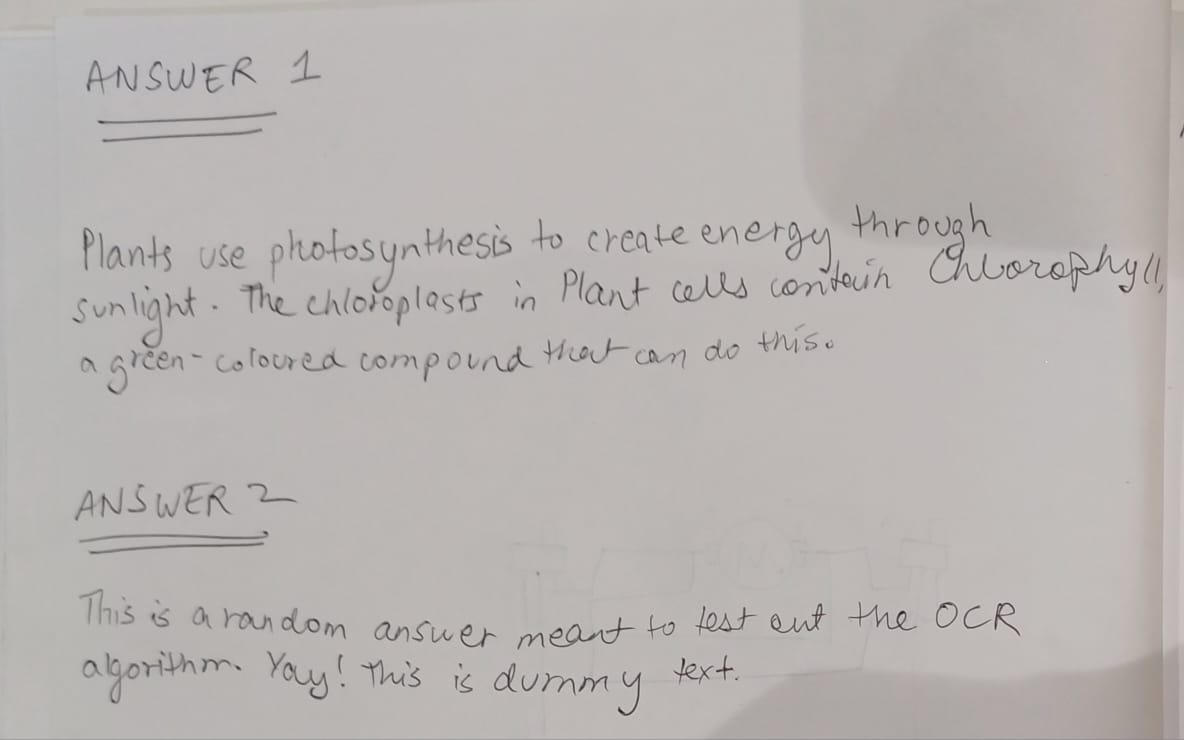 ANSWER 1
Plants use photosynthesis to create energy through
sunlight. The chloroplasts in Plant cells contain Chlorophyll,
a green-coloured compound that can do this.
ANSWER 2
This is a random answer meant to test out the OCR
algorithm. Yay! This is dummy text.